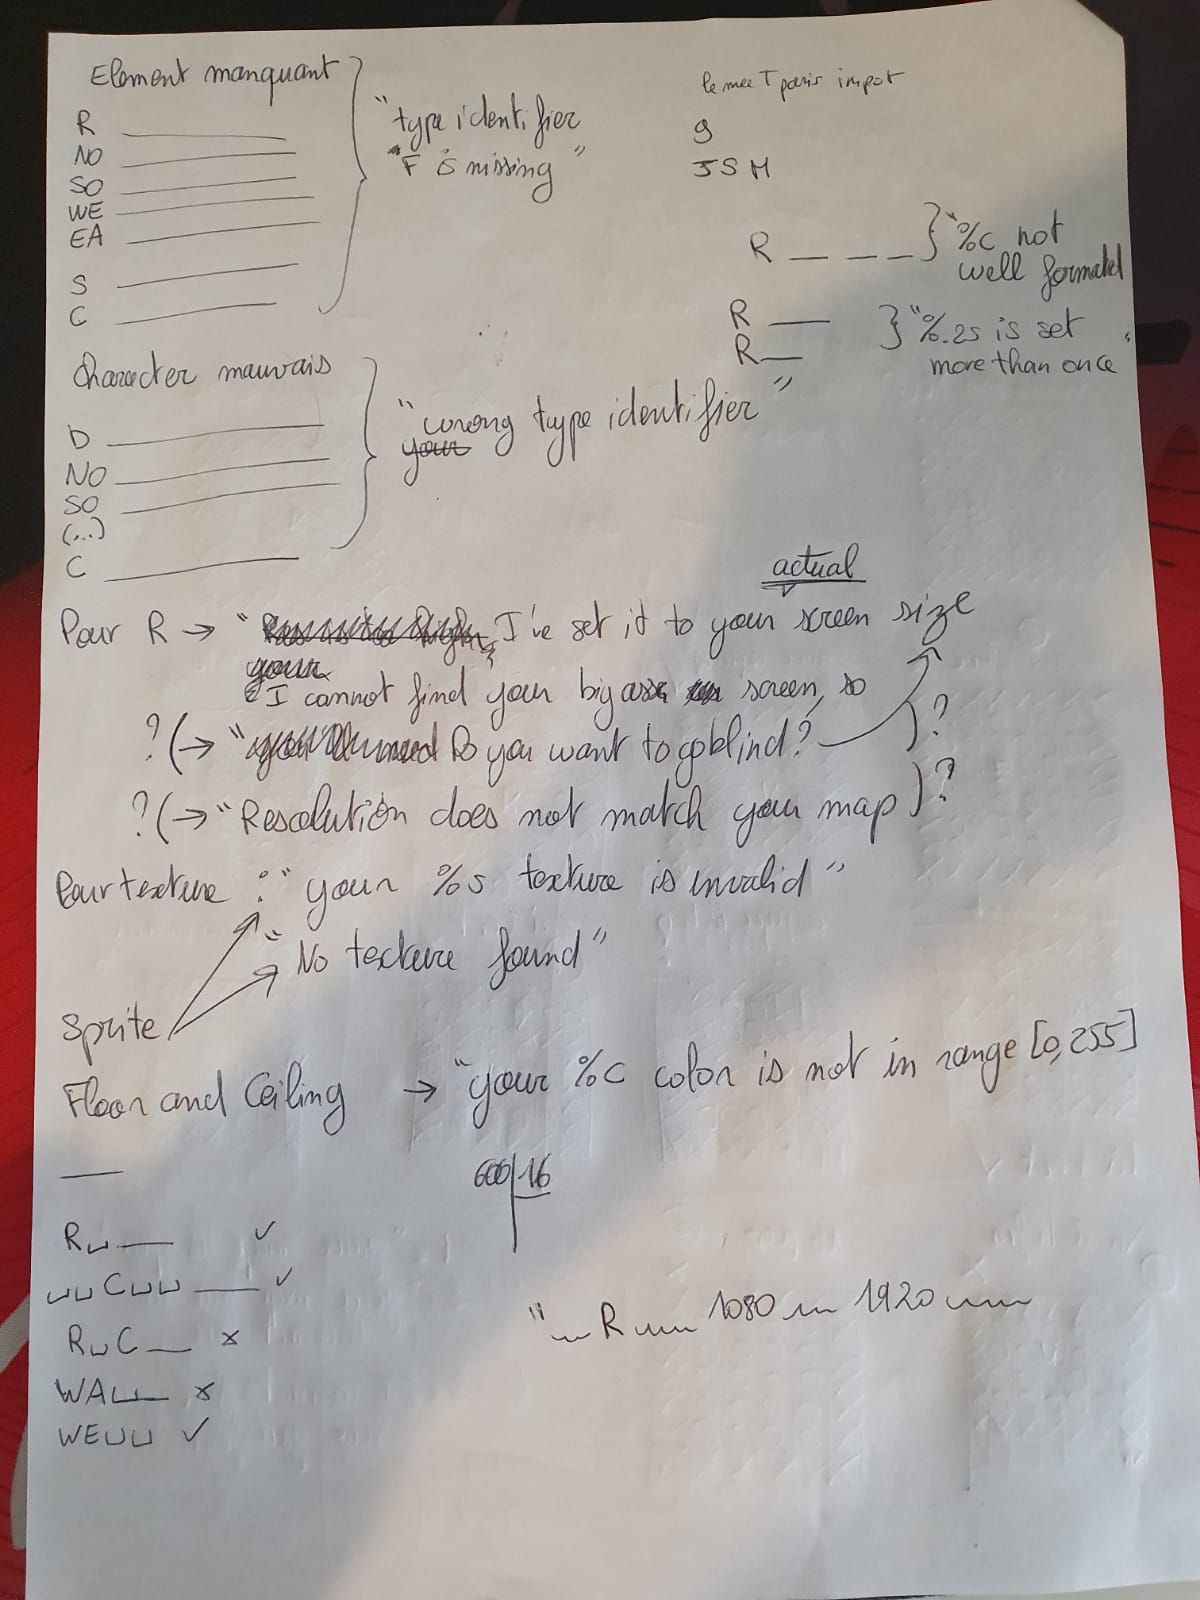 Element manquant
R
NO
SO
WE
EA
S
C
"type identifier
"F is missing"
9
JSM
R _ _ _ _ } "%c not
well formated
R
R
} "%.2s is set
more than once"
Character mauvais
D
NO
SO
(...)
C
"wrong type identifier"
your
actual
Pour R → " I've set it to your screen size
your
I cannot find your big ass screen, so
? (→ " Do you want to go blind? ) ?
? (→ "Resolution does not match your map ) ?
Pour texture : "your %s texture is invalid"
"No texture found"
Sprite
Floor and Ceiling → "your %c color is not in range [0, 255]
600 | 16
R␣ ✓
␣␣C␣␣ ✓
R␣C x
WA x
WE␣␣ ✓
" R 1080 1920